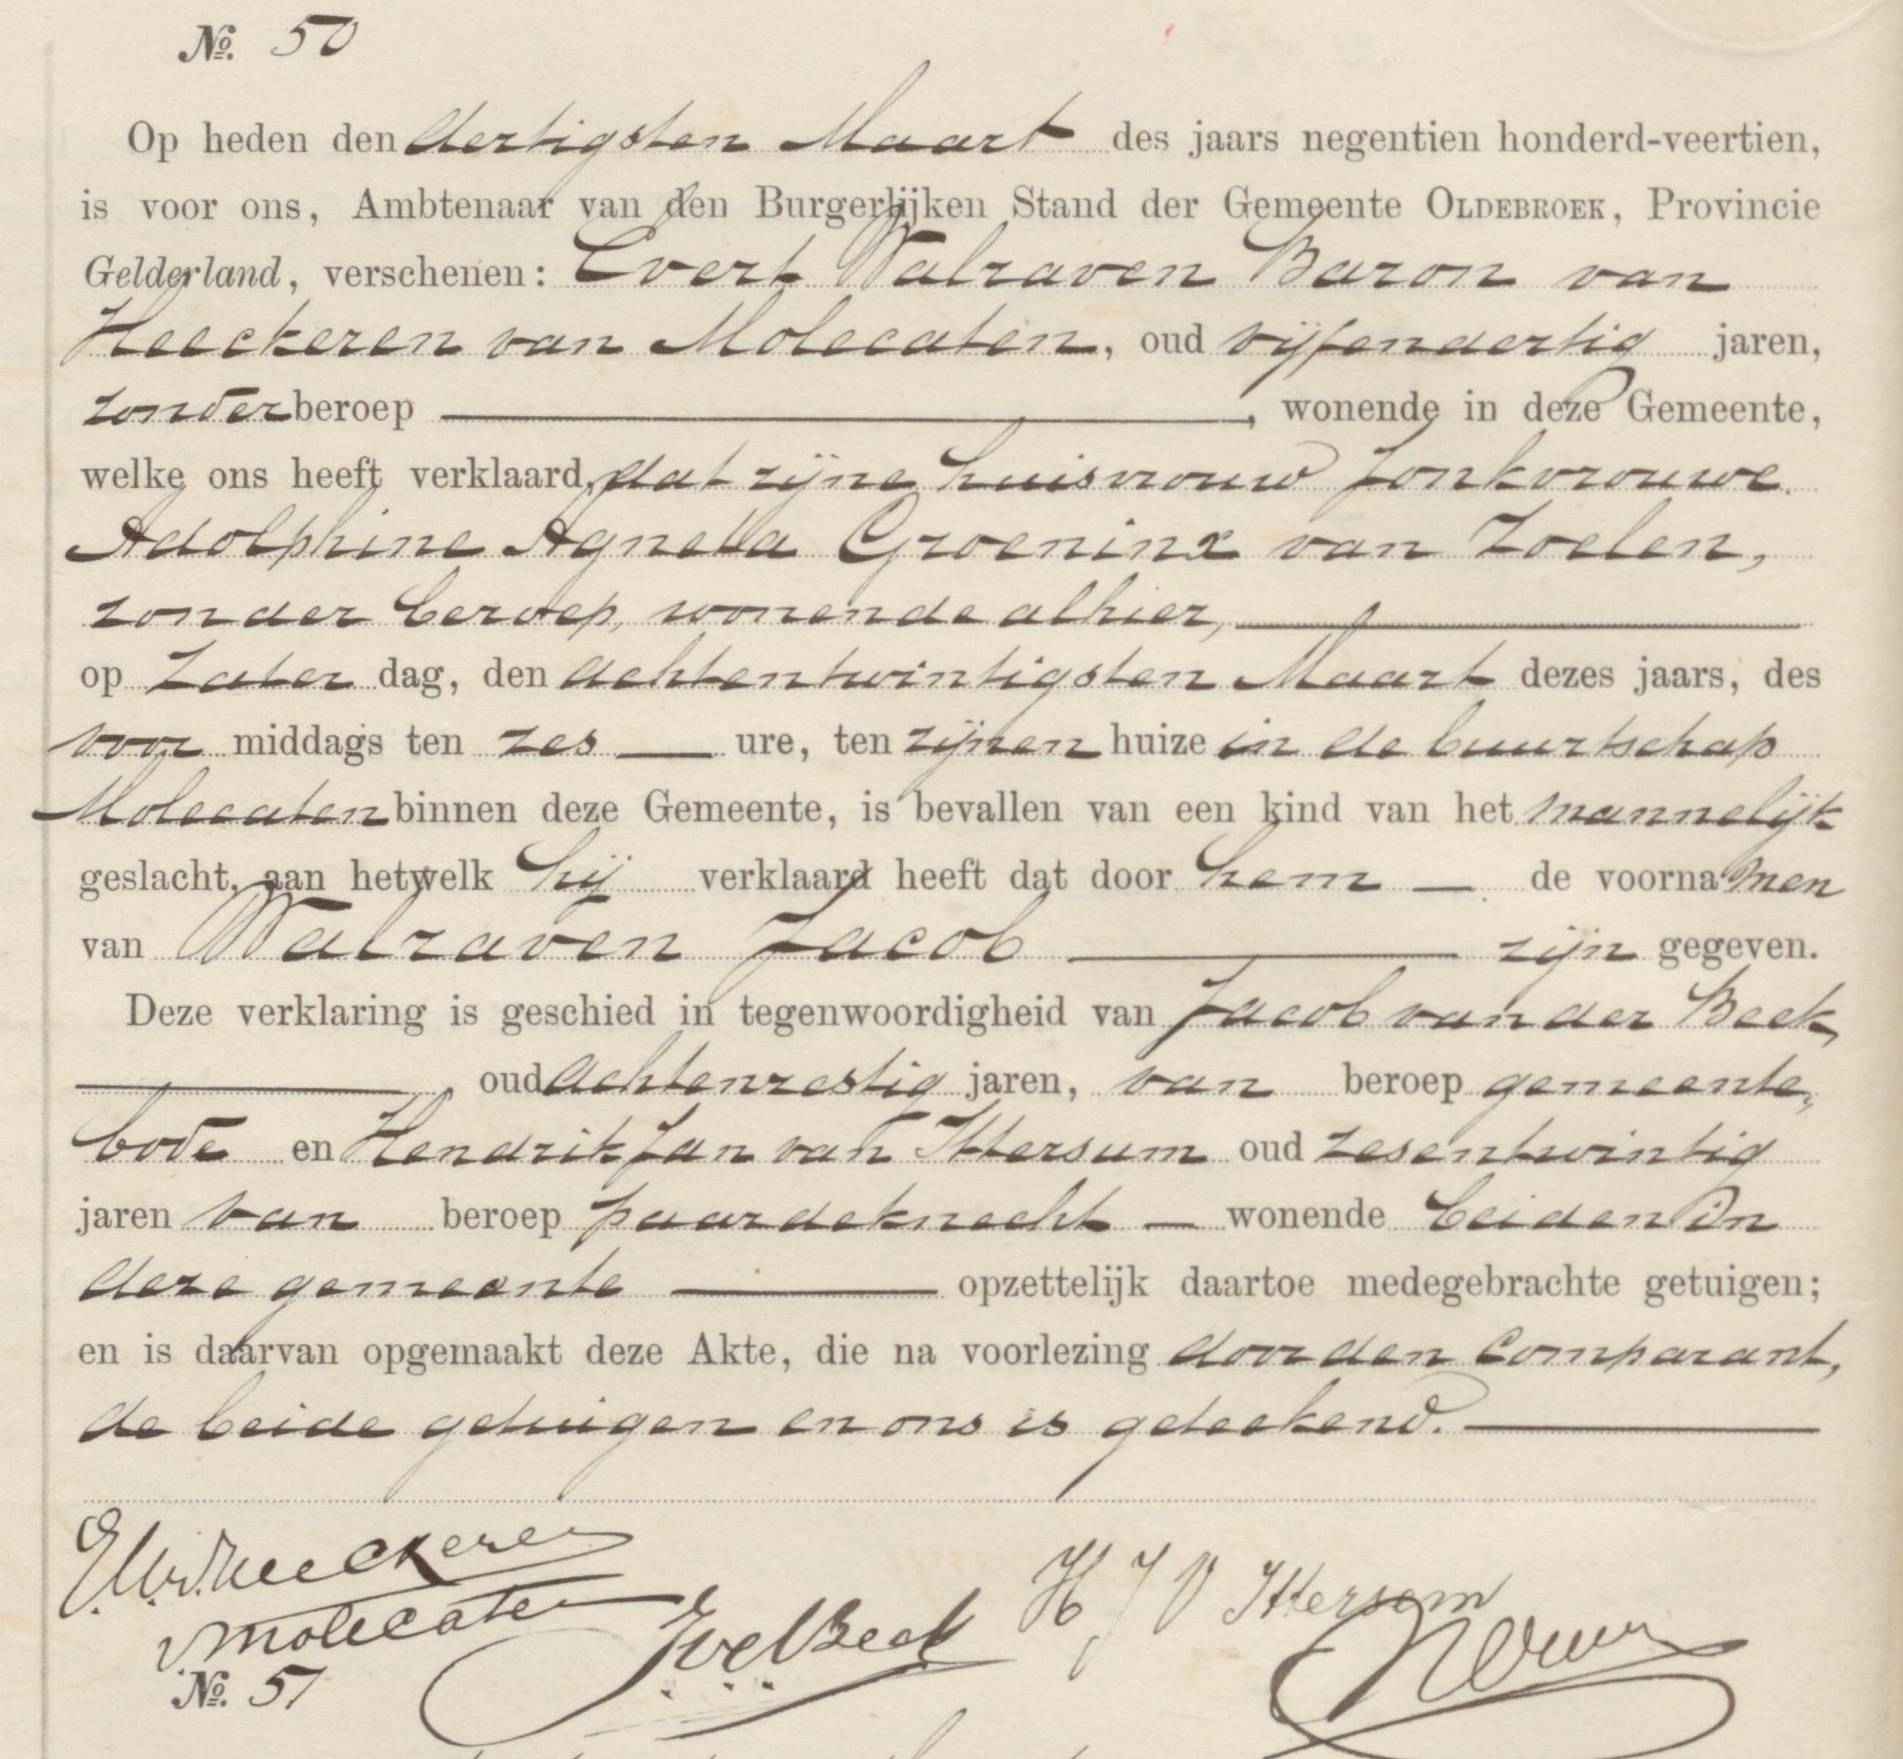 No. 50
Op heden den dertigsten Maart des jaars negentien honderd-veertien,
is voor ons, Ambtenaar van den Burgerlijken Stand der Gemeente OLDEBROEK, Provincie
Gelderland, verschenen: Evert Walraven Baron van
Heeckeren van Molecaten, oud vijfendertig jaren,
zonder beroep ———, wonende in deze Gemeente,
welke ons heeft verklaard, dat zijne huisvrouw Jonkvrouwe
Adolphine Agneta Groeninx van Zoelen,
zonder beroep, wonende alhier, ———
op Zater dag, den achtentwintigsten Maart dezes jaars, des
voor middags ten zes — ure, ten zijnen huize in de buurtschap
Molecaten binnen deze Gemeente, is bevallen van een kind van het mannelijk
geslacht, aan hetwelk hij verklaard heeft dat door hem — de voornamen
van Walraven Jacob ——— zijn gegeven.
Deze verklaring is geschied in tegenwoordigheid van Jacob van der Beek
———, oud achtenzestig jaren, van beroep gemeente-
bode en Hendrik Jan van Ittersum oud zesentwintig
jaren van beroep paardeknecht — wonende beiden in
deze gemeente ——— opzettelijk daartoe medegebrachte getuigen;
en is daarvan opgemaakt deze Akte, die na voorlezing door den comparant,
de beide getuigen en ons is geteekend. ———
E.W.v.Heeckeren
v. Molecaten
J.v.d.Beek
H J V Ittersom
No. 51